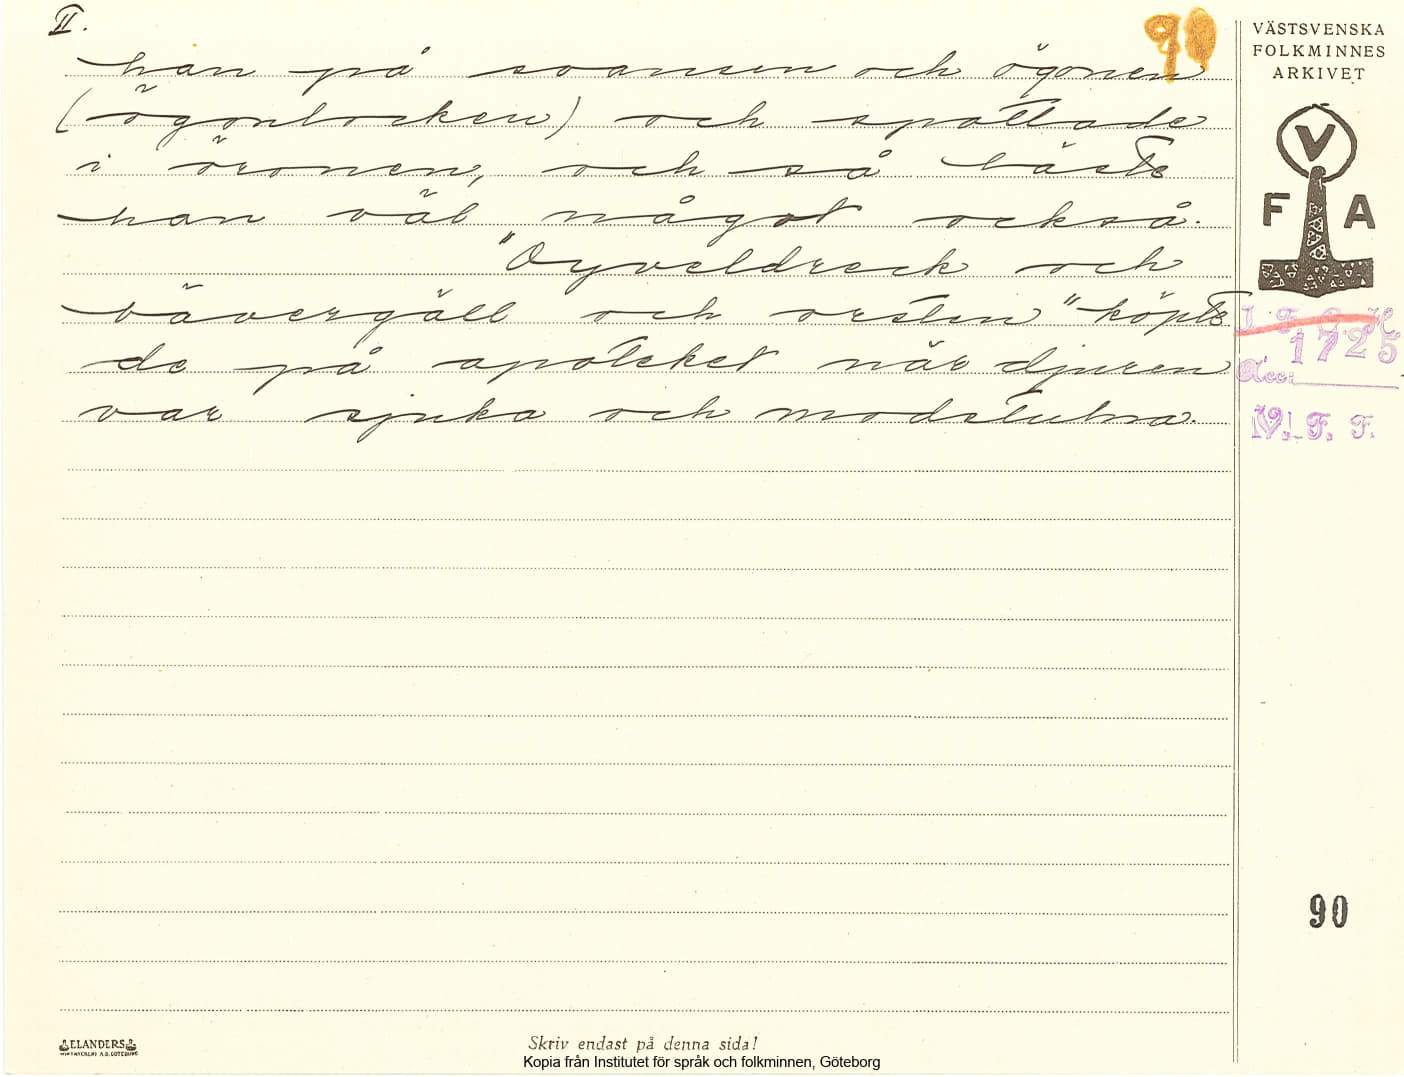 II.
90
han på svansen och ögonen
(ögonlocken) och spottade
i öronen, och så läste
han väl något också.
"Dyveldreck och
bävergäll och orsten" köpte
de på apoteket när djuren
var sjuka och modstulna.
VÄSTSVENSKA
FOLKMINNES
ARKIVET
V
F A
I. F. G. H.
1725
Acc:
V. F. F.
90
ELANDERS
Skriv endast på denna sida!
Kopia från Institutet för språk och folkminnen, Göteborg